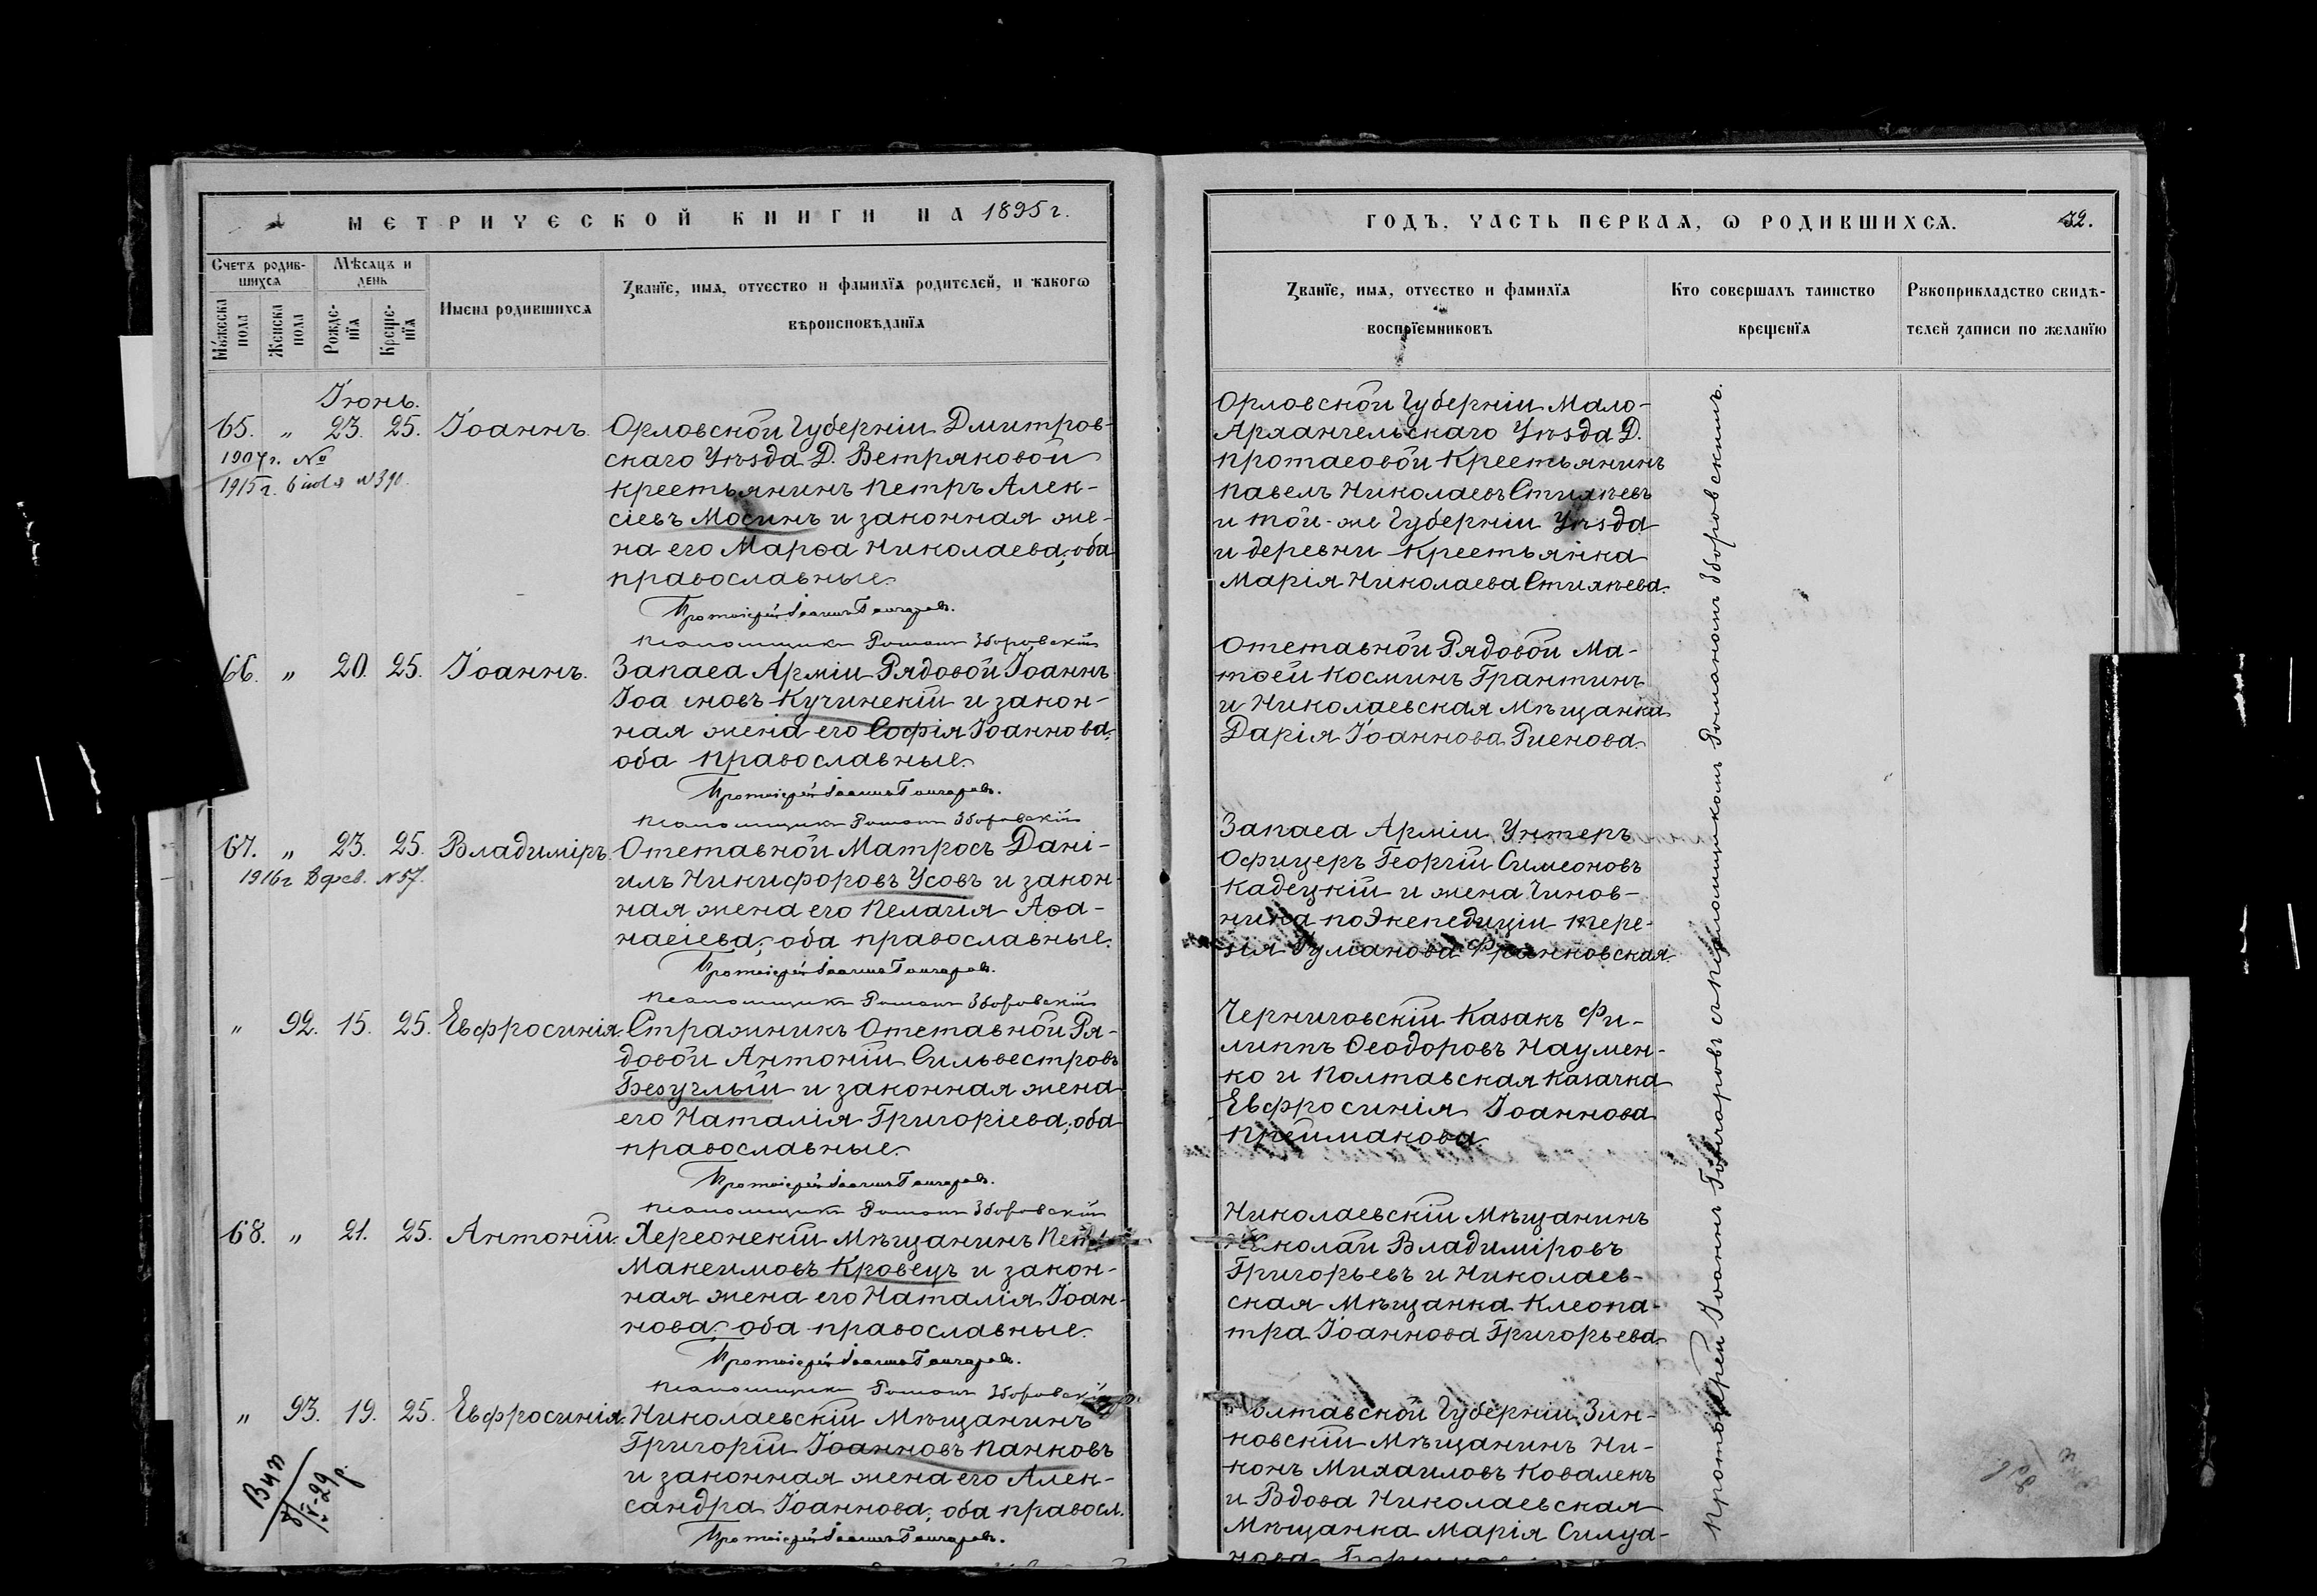 МЕТРИЧЕСКОЙ КНИГИ НА 1895 г.
Счетъ родив-
шихся
Мѣсяцъ и
день
Имена родившихся
Званїе, имя, отчество и фамилїя родителей, и какогѡ
вѣроисповѣданїя
Мꙋжеска
пола
Женска
пола
Рожде-
нїя
Креще-
нїя
Іюнь.
65. " 23. 25. Іоаннъ. Орловской Губерніи Дмитров-
скаго Уѣзда Д. Ветряковой
1907 г. №
крестьянинъ Петръ Алек-
1915 г. 6 іюля №390.
сіевъ Мосинъ и законная же-
на его Марѳа Николаева, оба
православные.
Протоіерей Іоаннъ Гончаровъ.
Псаломщикъ Романъ Зборовскій
66. " 20. 25. Іоаннъ. Запаса Арміи Рядовой Іоаннъ
Іоанновъ Кучинскій и закон-
ная жена его Софія Іоаннова,
оба православные.
Протоіерей Іоаннъ Гончаровъ.
Псаломщикъ Романъ Зборовскій
67. " 23. 25. Владиміръ. Отставной Матросъ Дані-
1916 г. фев. №57.
илъ Никифоровъ Усовъ и закон-
ная жена его Пелагія Аѳа-
насіева, оба православные.
Протоіерей Іоаннъ Гончаровъ.
Псаломщикъ Романъ Зборовскій
" 92. 15. 25. Евфросинія Стражникъ Отставной Ря-
довой Антоній Сильвестровъ
Безуглый и законная жена
его Наталія Григоріева, оба
православные.
Протоіерей Іоаннъ Гончаровъ.
Псаломщикъ Романъ Зборовскій
68. " 21. 25. Антоній. Херсонскій Мѣщанинъ
Максимовъ Кровецъ и закон-
ная жена его Наталія Іоан-
нова, оба православные.
Протоіерей Іоаннъ Гончаровъ.
Псаломщикъ Романъ Зборовскій
" 93. 19. 25. Евфросинія. Николаевскій Мѣщанинъ
Григорій Іоанновъ Панковъ
и законная жена его Алек-
сандра Іоаннова, оба правосл.
Протоіерей Іоаннъ Гончаровъ.
ГОДЪ, ЧАСТЬ ПЕРВАЯ, Ѡ РОДИВШИХСЯ. 32.
Званїе, имя, отчество и фамилїя
воспрїемниковъ
Кто совершалъ таинство
крещенїя
Рꙋкоприкладство свидѣ-
телей записи по желанїю
Орловской Губерніи Мало-
Архангельскаго Уѣзда Д.
Протасовой Крестьянинъ
Павелъ Николаевъ Стихѣевъ
и той-же Губерніи Уѣзда
и деревни Крестьянка
Марія Николаева Стихѣева.
Отставной Рядовой Ма-
тѳей Косминъ Грантинъ
и Николаевская Мѣщанка
Дарія Іоаннова
Запаса Арміи Унтеръ
Офицеръ Георгій Симеоновъ
Кадецкій и жена Чинов-
ника по Экспедиціи Тере-
зія Франковская.
Черниговскій Казакъ Фи-
липпъ Ѳеодоровъ Наумен-
ко и Полтавская казачка
Евфросинія Іоаннова
Прейманова
Николаевскій Мѣщанинъ
Николай Владиміровъ
Григорьевъ и Николаев-
ская Мѣщанка Клеопа-
тра Іоаннова Григорьева.
Полтавской Губерніи Зин-
ковскій Мѣщанинъ Ни-
конъ Михаиловъ Коваленъ
и Вдова Николаевская
Мѣщанка Марія Силуа-
нова
Протоіерей Іоаннъ Гончаровъ съ Псаломщикомъ Романомъ Зборовскимъ.